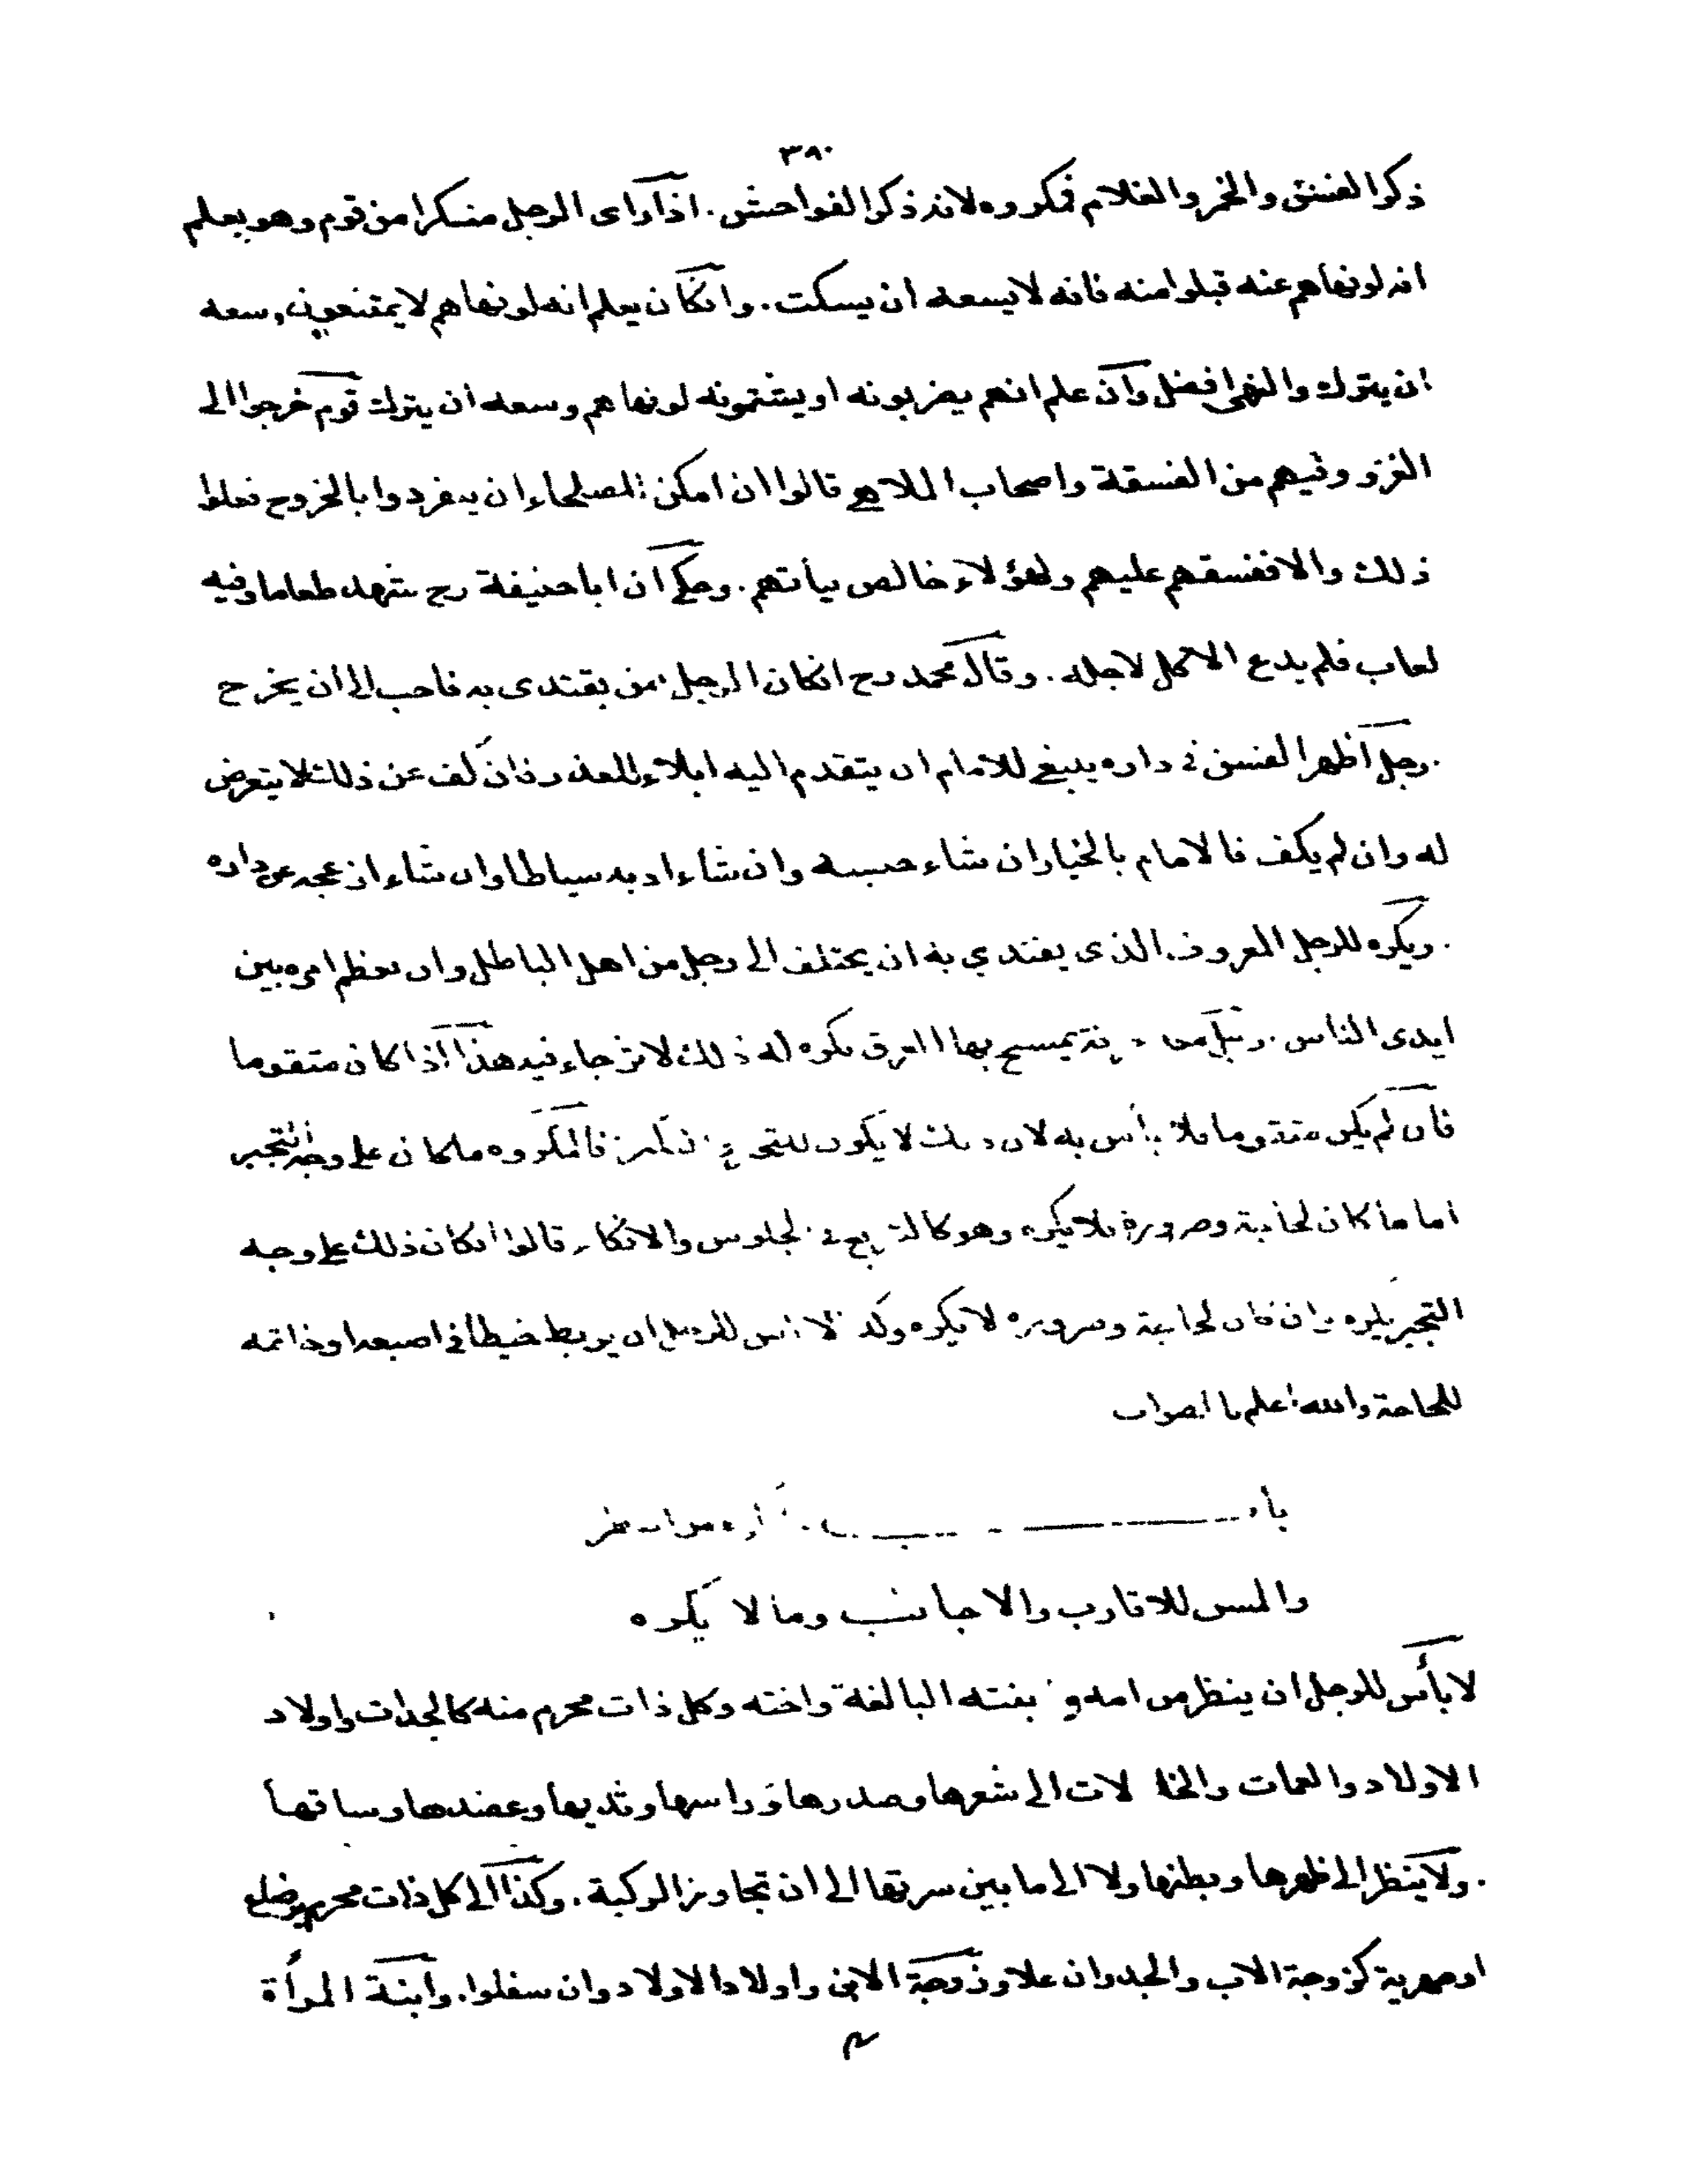 ٣٨٠
ذكر الفسق والخمر والغلام فمكروه لانه ذكر الفواحش. اذا رأى الرجل منكرا من قوم وهو يعلم
انه لو نهاهم عنه قبلوا منه فانه لا يسعه ان يسكت. وان كان يعلم انه لو نهاهم لا يمتنعون وسعه
ان يترك والنهي افضل وان علم انهم يضربونه او يشتمونه لو نهاهم وسعه ان يترك قوم خرجوا الى
الغزو وفيهم من الفسقة واصحاب الملاهي قالوا ان امكن للصلحاء ان ينفردوا بالخروج فعلوا
ذلك والا ففسقهم عليهم ولهؤلاء خالص نياتهم. وحكي ان ابا حنيفة رح شهد طعاما وفيه
لعاب فلم يدع الاكل لاجله. وقال محمد رح ان كان الرجل ممن يقتدى به فاحب الى ان يخرج
. رجل اظهر الفسق في داره ينبغي للامام ان يتقدم اليه ابلاء للعذر فان كف عن ذلك لا يتعرض
له وان لم يكف فالامام بالخيار ان شاء حبسه وان شاء ادبه سياطا وان شاء ازعجه عن داره
. ويكره للرجل المعروف الذي يقتدي به ان يختلف الى رجل من اهل الباطل وان يعظم امره بين
ايدي الناس. رجل يمسح بها العرق يكره له ذلك لانه جاء فيه هذا اذا كان متقوما
فان لم يكن متقوما فلا بأس به لان ذلك لا يكون للتجبر فالمكروه ما كان على وجه التجبر
اما ما كان لحاجة وضرورة فلا يكره وهو كالتربع في الجلوس والاتكاء قالوا ان كان ذلك على وجه
التجبر يكره وان كان لحاجة وضرورة لا يكره وكذا لا بأس للرجل ان يربط خيطا في اصبعه او خاتمه
للحاجة والله اعلم بالصواب
باب
والمس للاقارب والاجانب وما لا يكره
لا بأس للرجل ان ينظر من امه و بنته البالغة واخته وكل ذات محرم منه كالجدات واولاد
الاولاد والعمات والخالات الى شعرها وصدرها وراسها وثديها وعضدها وساقها
. ولا ينظر الى ظهرها وبطنها ولا الى ما بين سرتها الى ان تجاوز الركبة. وكذا الى كل ذات محرم برضاع
او صهرية كزوجة الاب والجد وان علا وزوجة الابن واولاد الاولاد وان سفلوا. وابنة المرأة